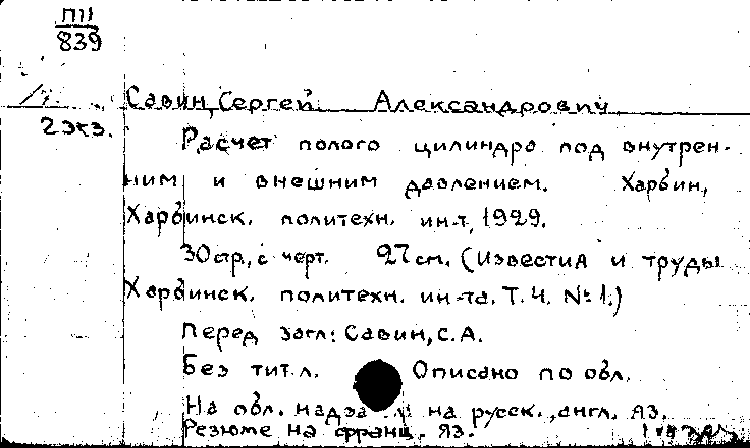 П11
839
Савин, Сергей Александрович
2 экз.
Расчет полого цилиндра под внутрен-
ним и внешним давлением. Харбин,
Харбинск. политехн. ин-т, 1929.
30 стр., с черт. 27 см. (Известия и труды
Харбинск. политехн. ин-та. Т. 4. № 1.)
Перед загл: Савин, С. А.
Без тит. л. Описано по обл.
На обл. на русск., англ. яз.
Резюме на франц. яз.